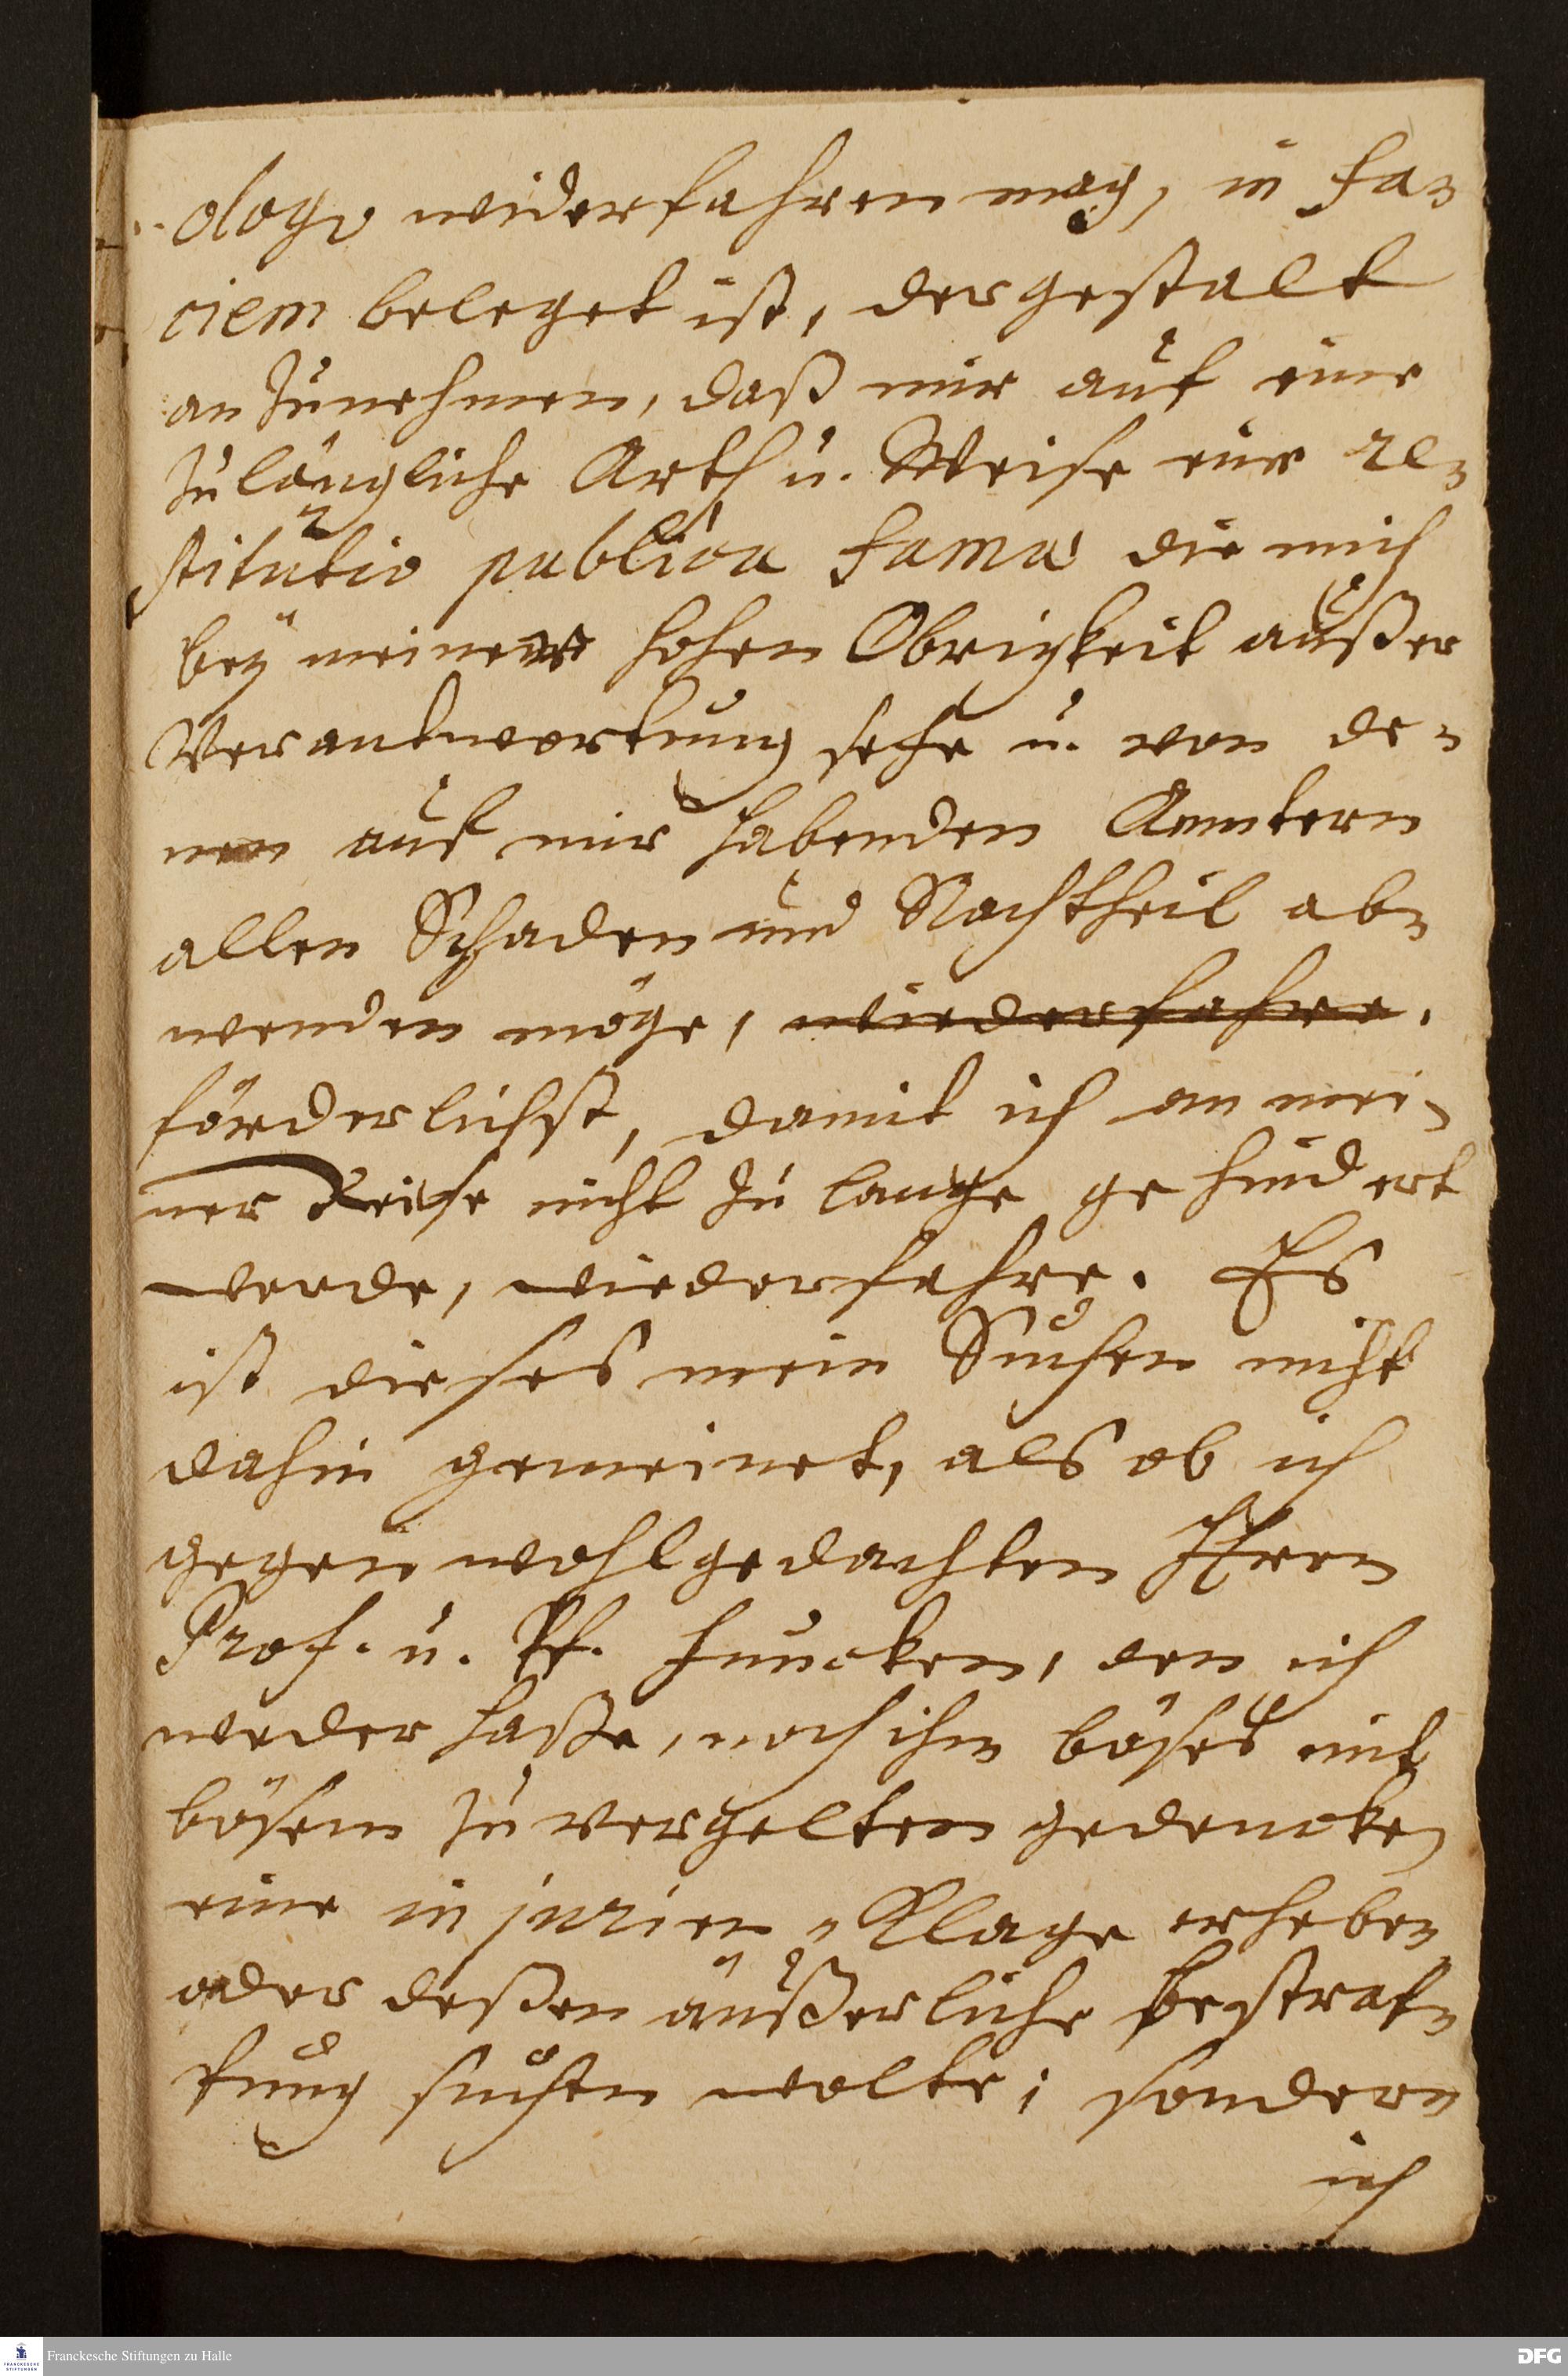 ologo widerfahren mag, in fa-
ciem beleget ist, dergestalt
anzunehmen, daß mir auf eine
zulängliche Arth u. Weise eine re-
stitutio publica famæ die mich
bey meiner hohen Obrigkeit außer
Verantwortung setze u. von de-
nen auf mir habenden Aemtern
allen Schaden und Nachtheil ab-
wenden möge, wiederfahre.
förderlichst, damit ich an mei-
ner Reise nicht zu lange gehindert
werde, wiederfahre. Es
ist dieses mein Suchen nicht
dahin gemeinet, als ob ich
gegen wohlgedachten Herrn
Prof. u. Pf. Funcken, den ich
weder haße, noch ihm böses mit
bösem zu vergelten gedencke
eine injurien-Klage erheben
oder deßen äußerliche Bestraf-
fung suchen wolte; sondern
ich
Franckesche Stiftungen zu Halle
DFG